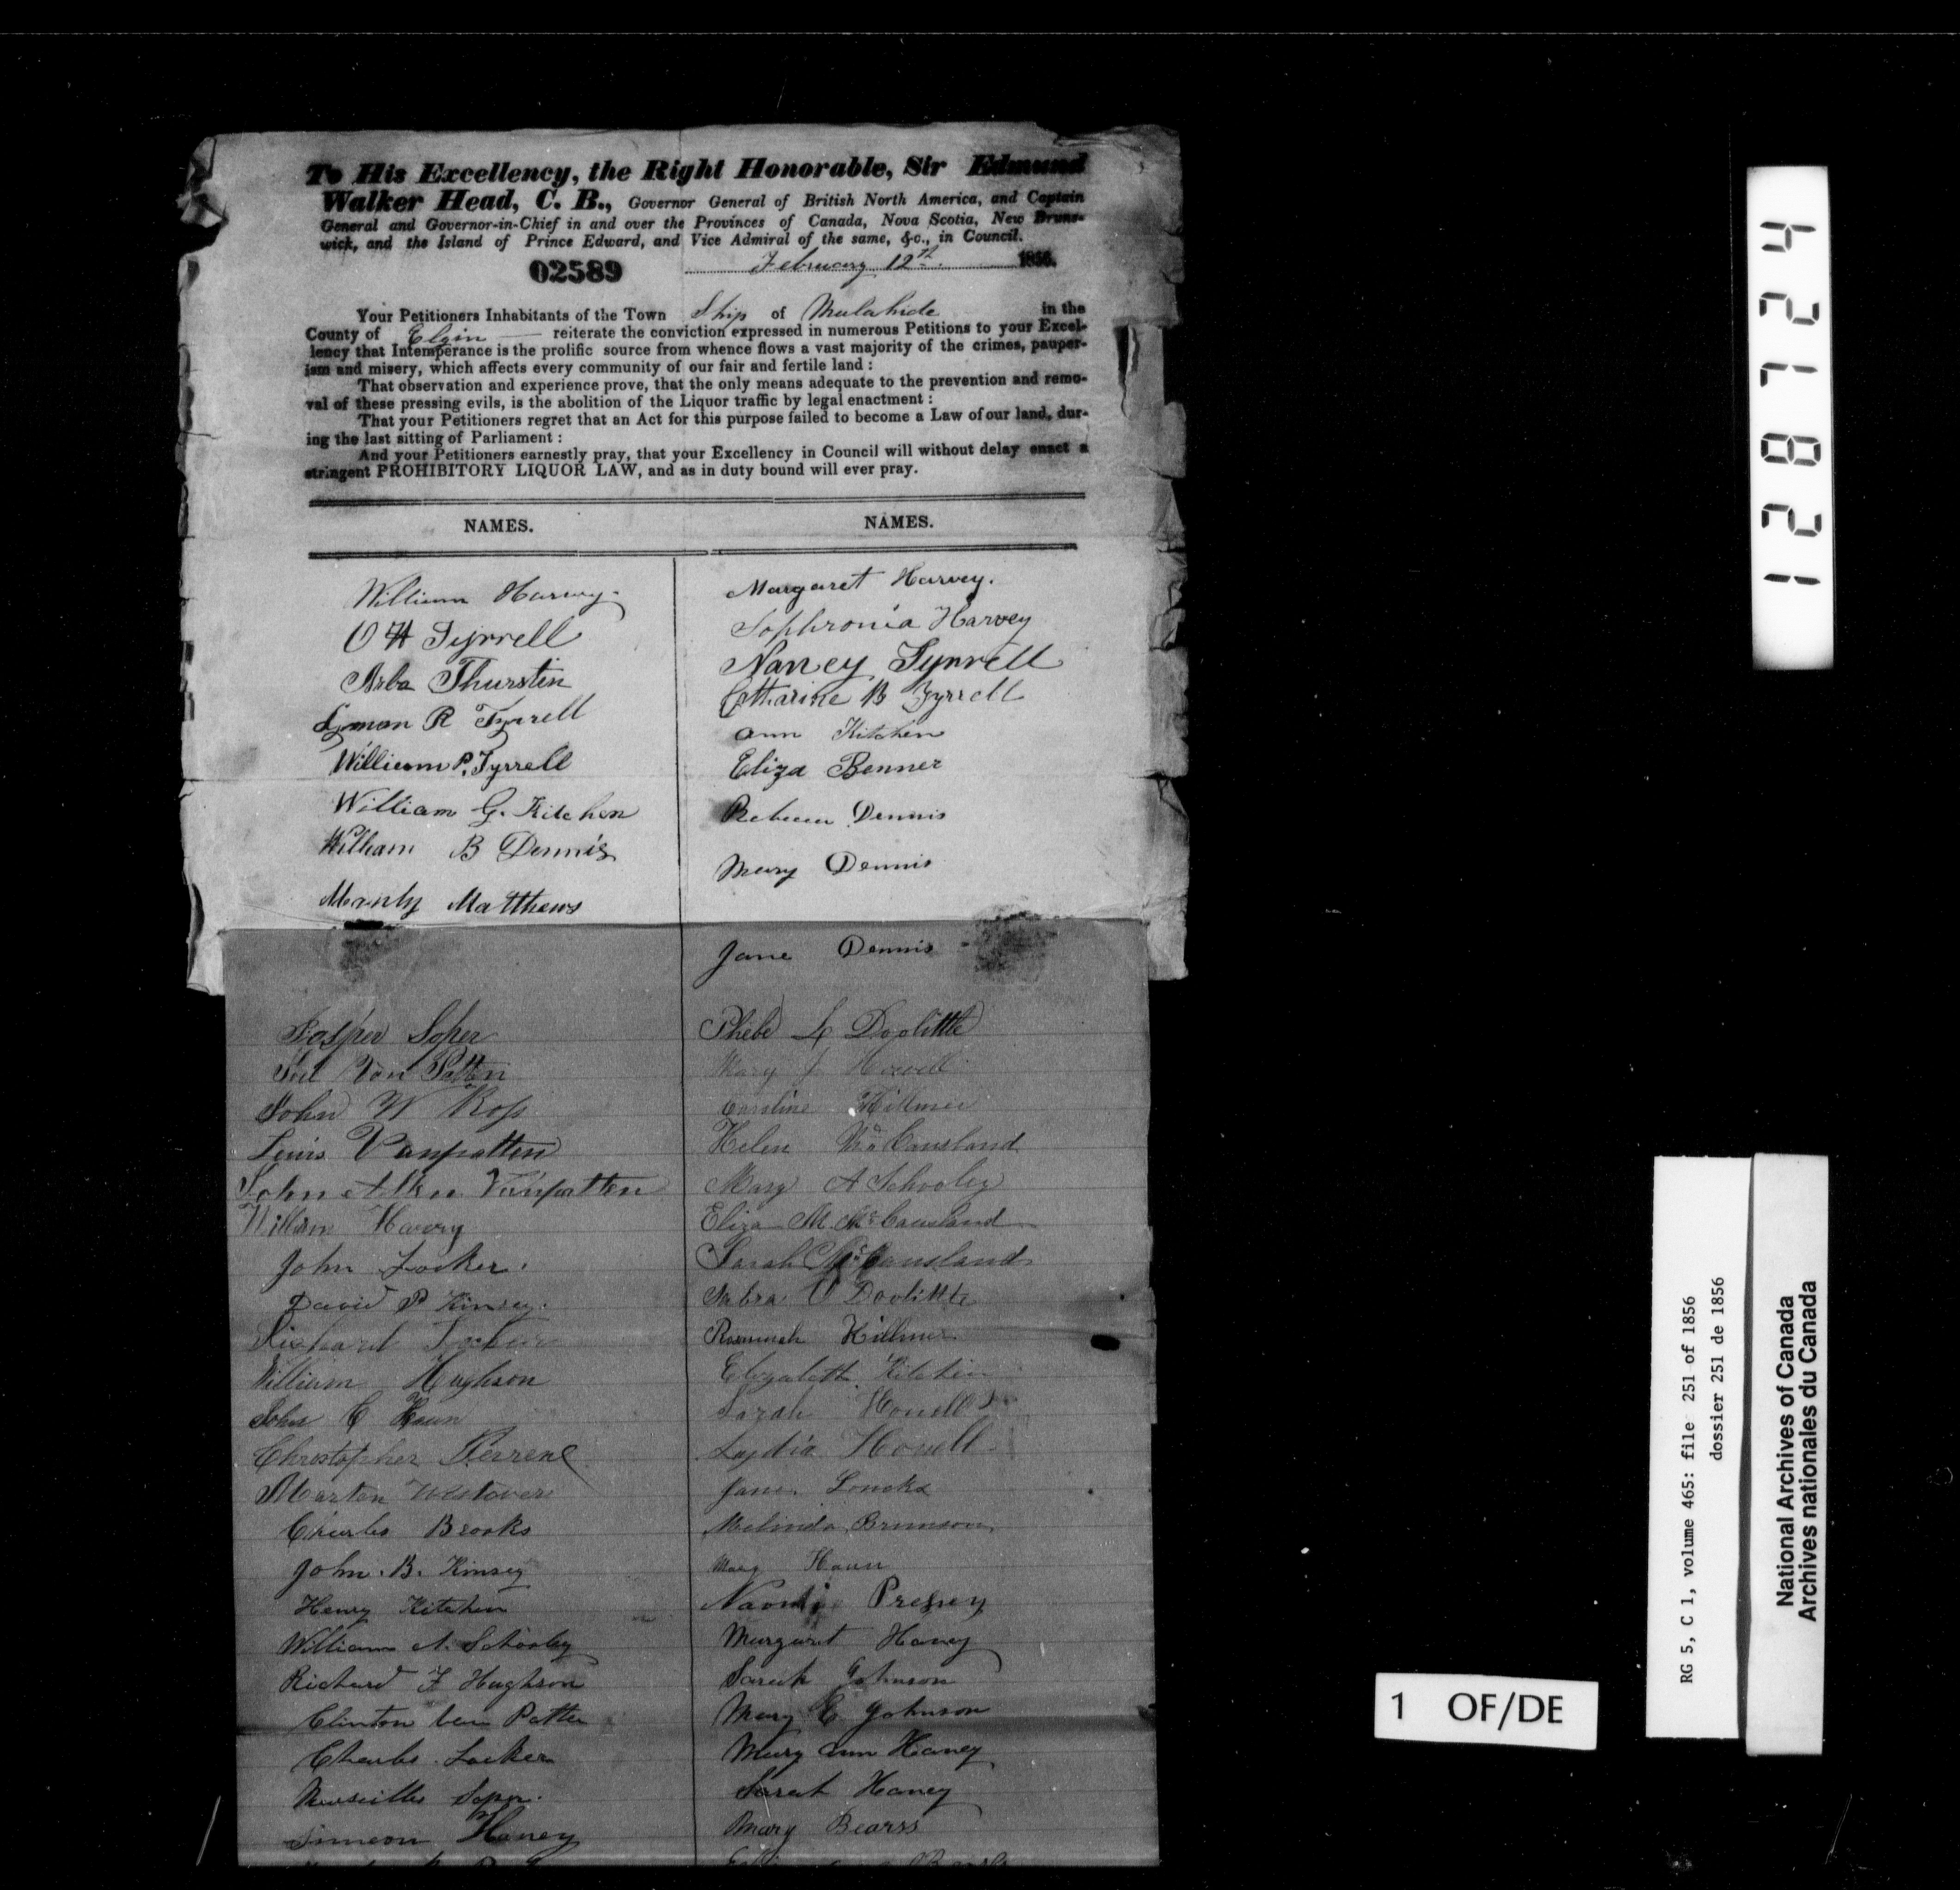 To His Excellency, the Right Honorable, Sir Edmund
Walker Head, C. B., Governor General of British North America, and Captain
General and Governor-in-Chief in and over the Provinces of Canada, Nova Scotia, New Bruns-
wick, and the Island of Prince Edward, and Vice Admiral of the same, &c., in Council.
02589 February 12th 1856.
Your Petitioners Inhabitants of the Town Ship of Malahide in the
County of Elgin reiterate the conviction expressed in numerous Petitions to your Excel-
lency that Intemperance is the prolific source from whence flows a vast majority of the crimes, pauper-
ism and misery, which affects every community of our fair and fertile land :
That observation and experience prove, that the only means adequate to the prevention and remo-
val of these pressing evils, is the abolition of the Liquor traffic by legal enactment :
That your Petitioners regret that an Act for this purpose failed to become a Law of our land, dur-
ing the last sitting of Parliament :
And your Petitioners earnestly pray, that your Excellency in Council will without delay enact a
stringent PROHIBITORY LIQUOR LAW, and as in duty bound will ever pray.
NAMES.
William Harvey.
O H Tyrrell
Arba Thurstin
Lyman R Tyrrell
William P. Tyrrell
William G. Kitchen
William B Dennis
Manly Matthews
Jasper Soper
Van Patten
John W Ross
Lewis Vanpatten
John Allen Vanpatten
William Harvey
John Locker.
David P Kinsey.
Richard
William Hughson
John C Haun
Christopher
Marten Westover
Charles Brooks
John. B. Kinsey
Henry Kitchen
William A. Schooley
Richard F Hughson
Clinton Van Patten
Charles Locker
Marseilles Soper.
Simeon Haney
NAMES.
Margaret Harvey.
Sophronia Harvey
Nancy Tyrrell
Catharine B Tyrrell
Ann Kitchen
Eliza Benner
Rebecca Dennis
Mary Dennis
Jane Dennis
Phebe L Doolittle
Mary J Howell
Caroline Hillmer
Helen McCausland
Mary A Schooley
Eliza M. McCausland
Sarah McCausland
Sabra O Doolittle
Hillmer
Elizabeth Kitchen
Sarah Howell
Lydia Howell
Jane Loucks
Melinda Brunson
Mary Haun
Naomi Pressey
Margaret Haney
Sarah Johnson
Mary E Johnson
Mary Ann Haney
Sarah Haney
Mary Bearss
128724
1 OF/DE
RG 5, C 1, volume 465: file 251 of 1856
dossier 251 de 1856
National Archives of Canada
Archives nationales du Canada